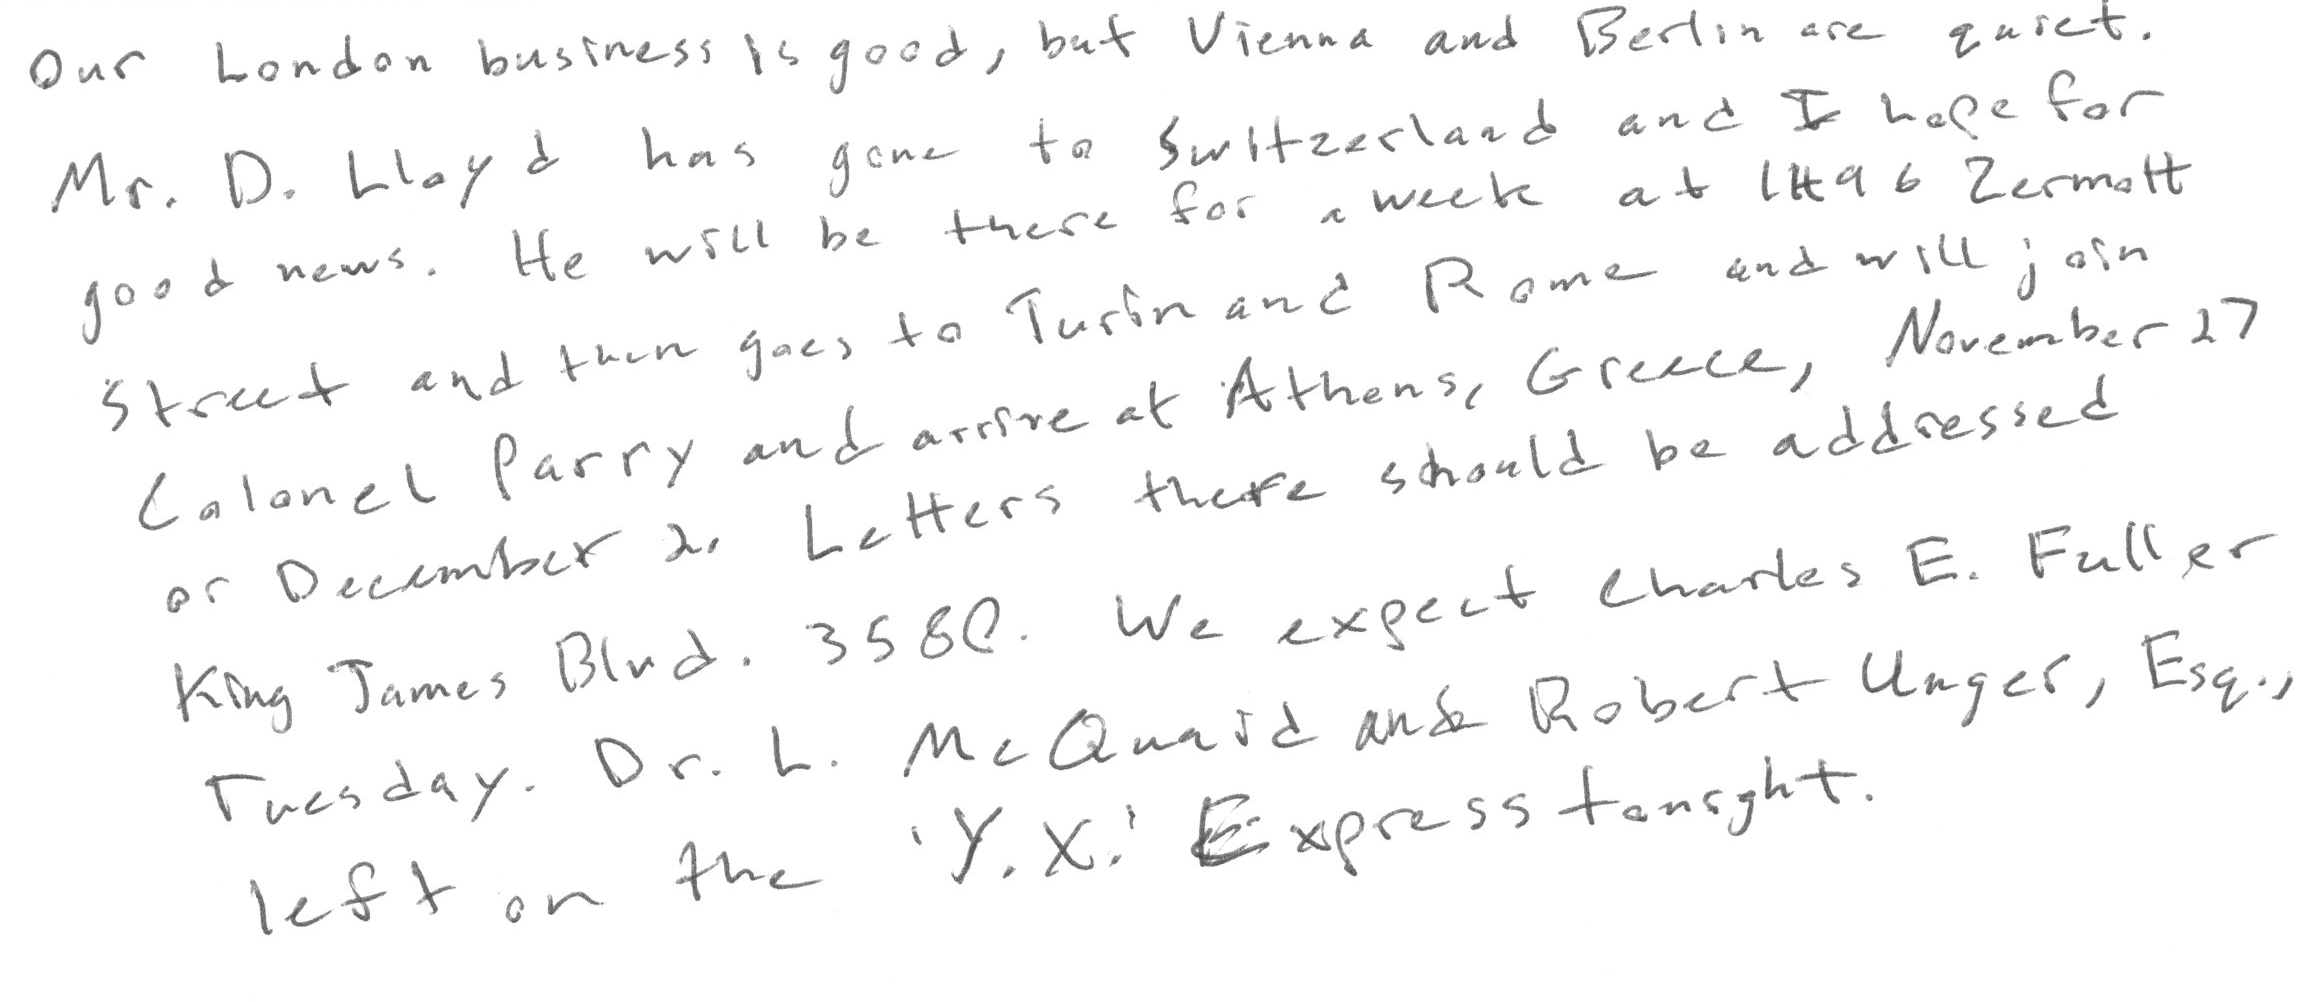 Our London business is good, but Vienna and Berlin are quiet.
Mr. D. Lloyd has gone to Switzerland and I hope for
good news. He will be there for a week at 1496 Zermott
Street and then goes to Turin and Rome and will join
Colonel Parry and arrive at Athens, Greece, November 27
or December 2. Letters there should be addressed
King James Blvd. 3580. We expect Charles E. Fuller
Tuesday. Dr. L. McQuaid and Robert Unger, Esq.,
left on the 'Y.X.' Express tonight.